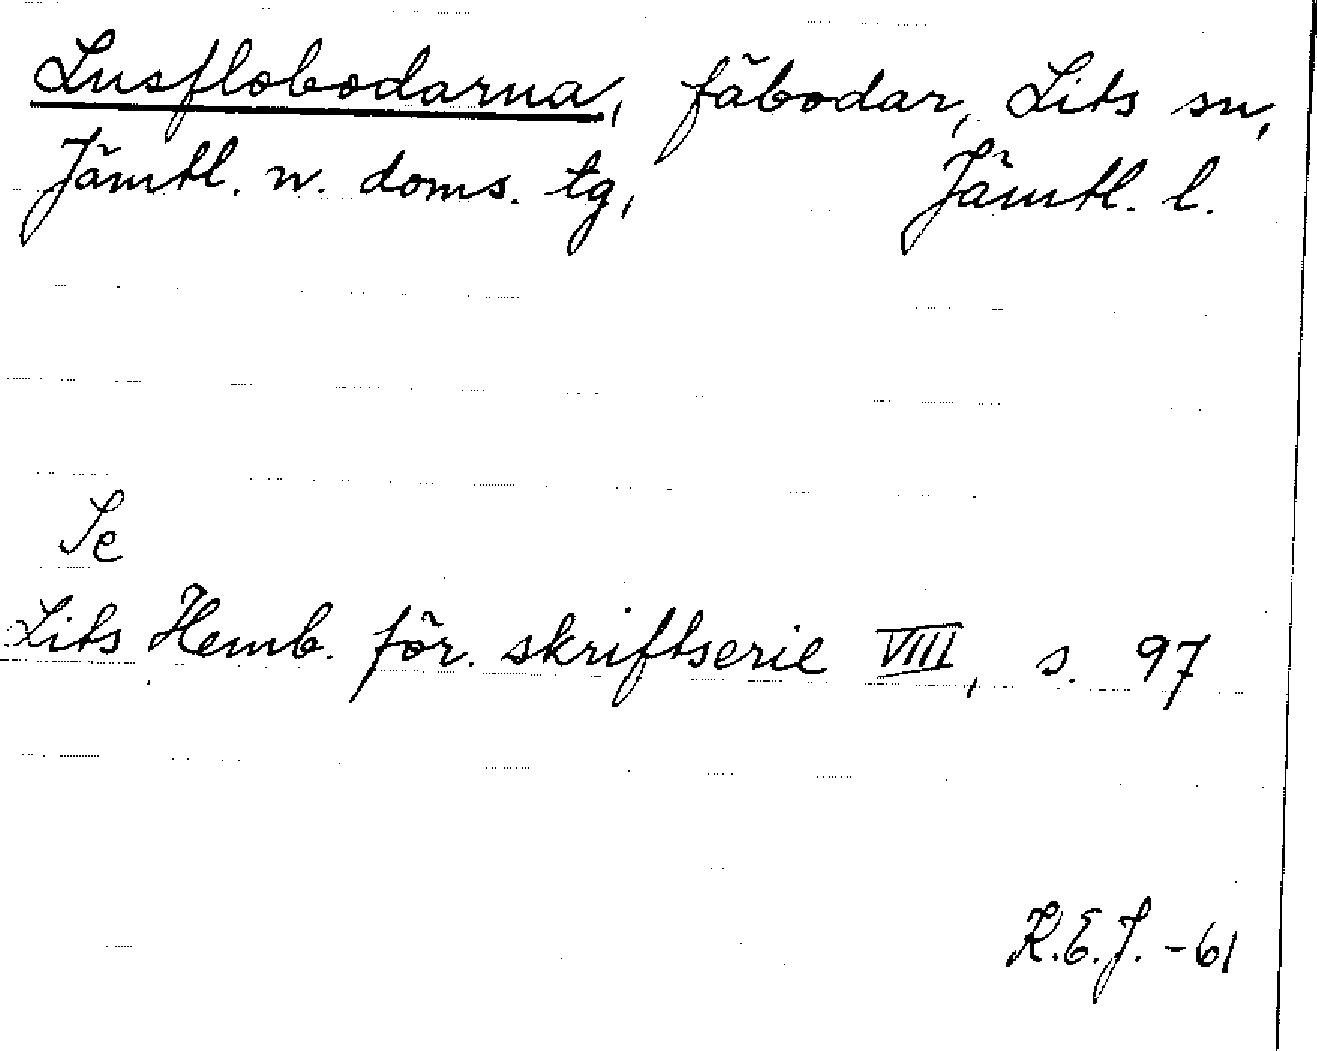 Lusflobodarna, fäbodar, Lits sn,
Jämtl. n. doms. tg, Jämtl. l.
Se
Lits Hemb. för. skriftserie VIII, s. 97
K.E.J. -61